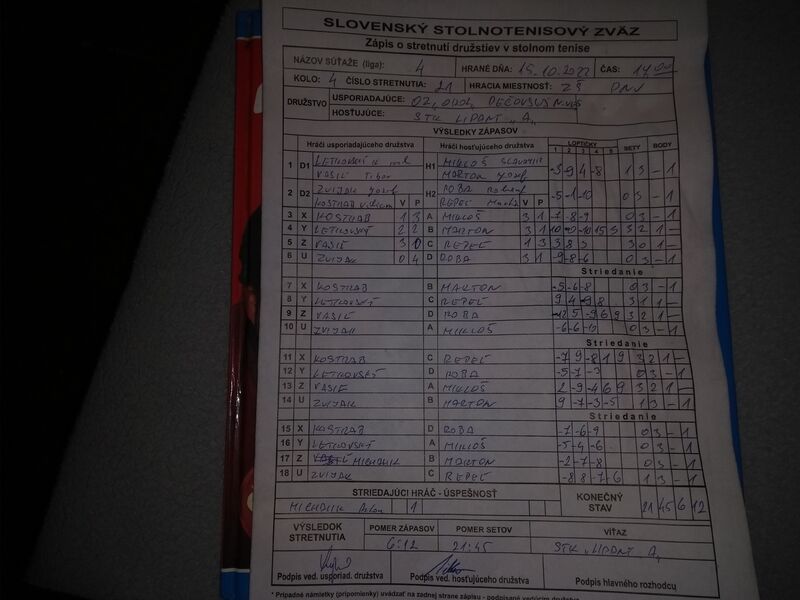 SLOVENSKÝ STOLNOTENISOVÝ ZVÄZ
Zápis o stretnutí družstiev v stolnom tenise
NÁZOV SÚŤAŽE (liga): 4 HRANÉ DŇA: 15.10.2022 ČAS: 14
KOLO: 4 ČÍSLO STRETNUTIA: 21 HRACIA MIESTNOSŤ: ZŠ DNV
DRUŽSTVO USPORIADAJÚCE:
HOSŤUJÚCE: STK LIPANY „A„
VÝSLEDKY ZÁPASOV
Hráči usporiadajúceho družstva Hráči hosťujúceho družstva LOPTIČKY SETY BODY
1 2 3 4 5
1 D1 LETKOVSKÝ H1 MIKLOŠ SLAVOMÍR -3 -9 4 -8 1 3 - 1
VASIĽ Tibor MARTON Jozef
2 D2 ZVIJAK Jozef H2 ROBA -5 -1 -10 0 3 - 1
KOSTRAB V P REPEĽ V P
3 X KOSTRAB 1 3 A MIKLOŠ 3 1 -7 -8 -9 0 3 - 1
4 Y LETKOVSKÝ 2 2 B MARTON 3 1 3 2 1 -
5 Z VASIĽ 3 0 C REPEĽ 1 3 3 8 3 3 0 1 -
6 U ZVIJAK 0 4 D ROBA 3 1 -9 -8 -6 0 3 - 1
Striedanie
7 X KOSTRAB B MARTON -5 -6 -8 0 3 - 1
8 Y LETKOVSKÝ C REPEĽ 9 4 -9 8 3 1 1 -
9 Z VASIĽ D ROBA -12 5 -9 6 9 3 2 1 -
10 U ZVIJAK A MIKLOŠ -6 -6 -10 0 3 - 1
Striedanie
11 X KOSTRAB C REPEĽ -7 9 -8 1 9 3 2 1 -
12 Y LETKOVSKÝ D ROBA -5 -7 -3 0 3 - 1
13 Z VASIĽ A MIKLOŠ 2 -9 -4 6 9 3 2 1 -
14 U ZVIJAK B MARTON 9 -7 -3 -5 1 3 - 1
Striedanie
15 X KOSTRAB D ROBA -7 -6 -9 0 3 - 1
16 Y LETKOVSKÝ A MIKLOŠ -5 -4 -6 0 3 - 1
17 Z MICHALIK B MARTON -2 -7 -8 0 3 - 1
18 U ZVIJAK C REPEĽ -8 8 -7 -6 1 3 - 1
STRIEDAJÚCI HRÁČ - ÚSPEŠNOSŤ KONEČNÝ STAV 21 45 6 12
MICHALIK 1
VÝSLEDOK STRETNUTIA POMER ZÁPASOV POMER SETOV VÍŤAZ
6:12 21:45 STK „LIPANY A„
Podpis ved. usporiad. družstva Podpis ved. hosťujúceho družstva Podpis hlavného rozhodcu
* Prípadné námietky (pripomienky) uvádzať na zadnej strane zápisu - podpísané vedúcim družstva